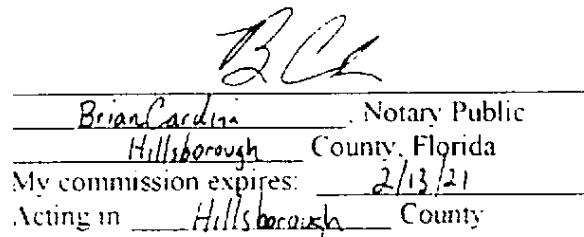 Brian Cardina, Notary Public
Hillsborough County, Florida
My commission expires: 2/13/21
Acting in Hillsborough County